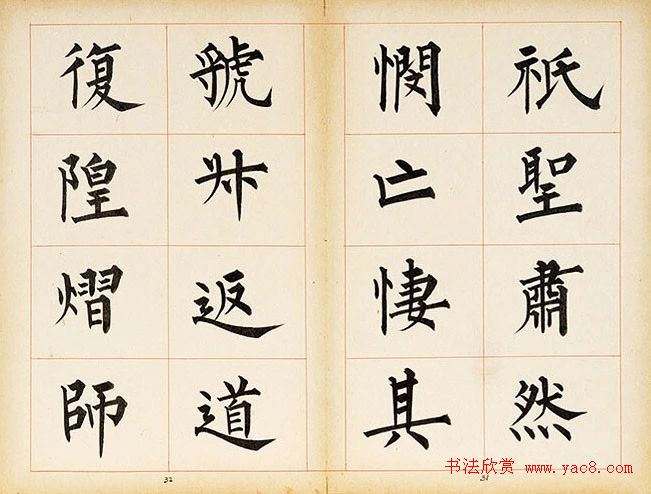 祇聖肅然
憫亡悽其
虢返道
復隍熠師
32
31
书法欣赏 www.yac8.com